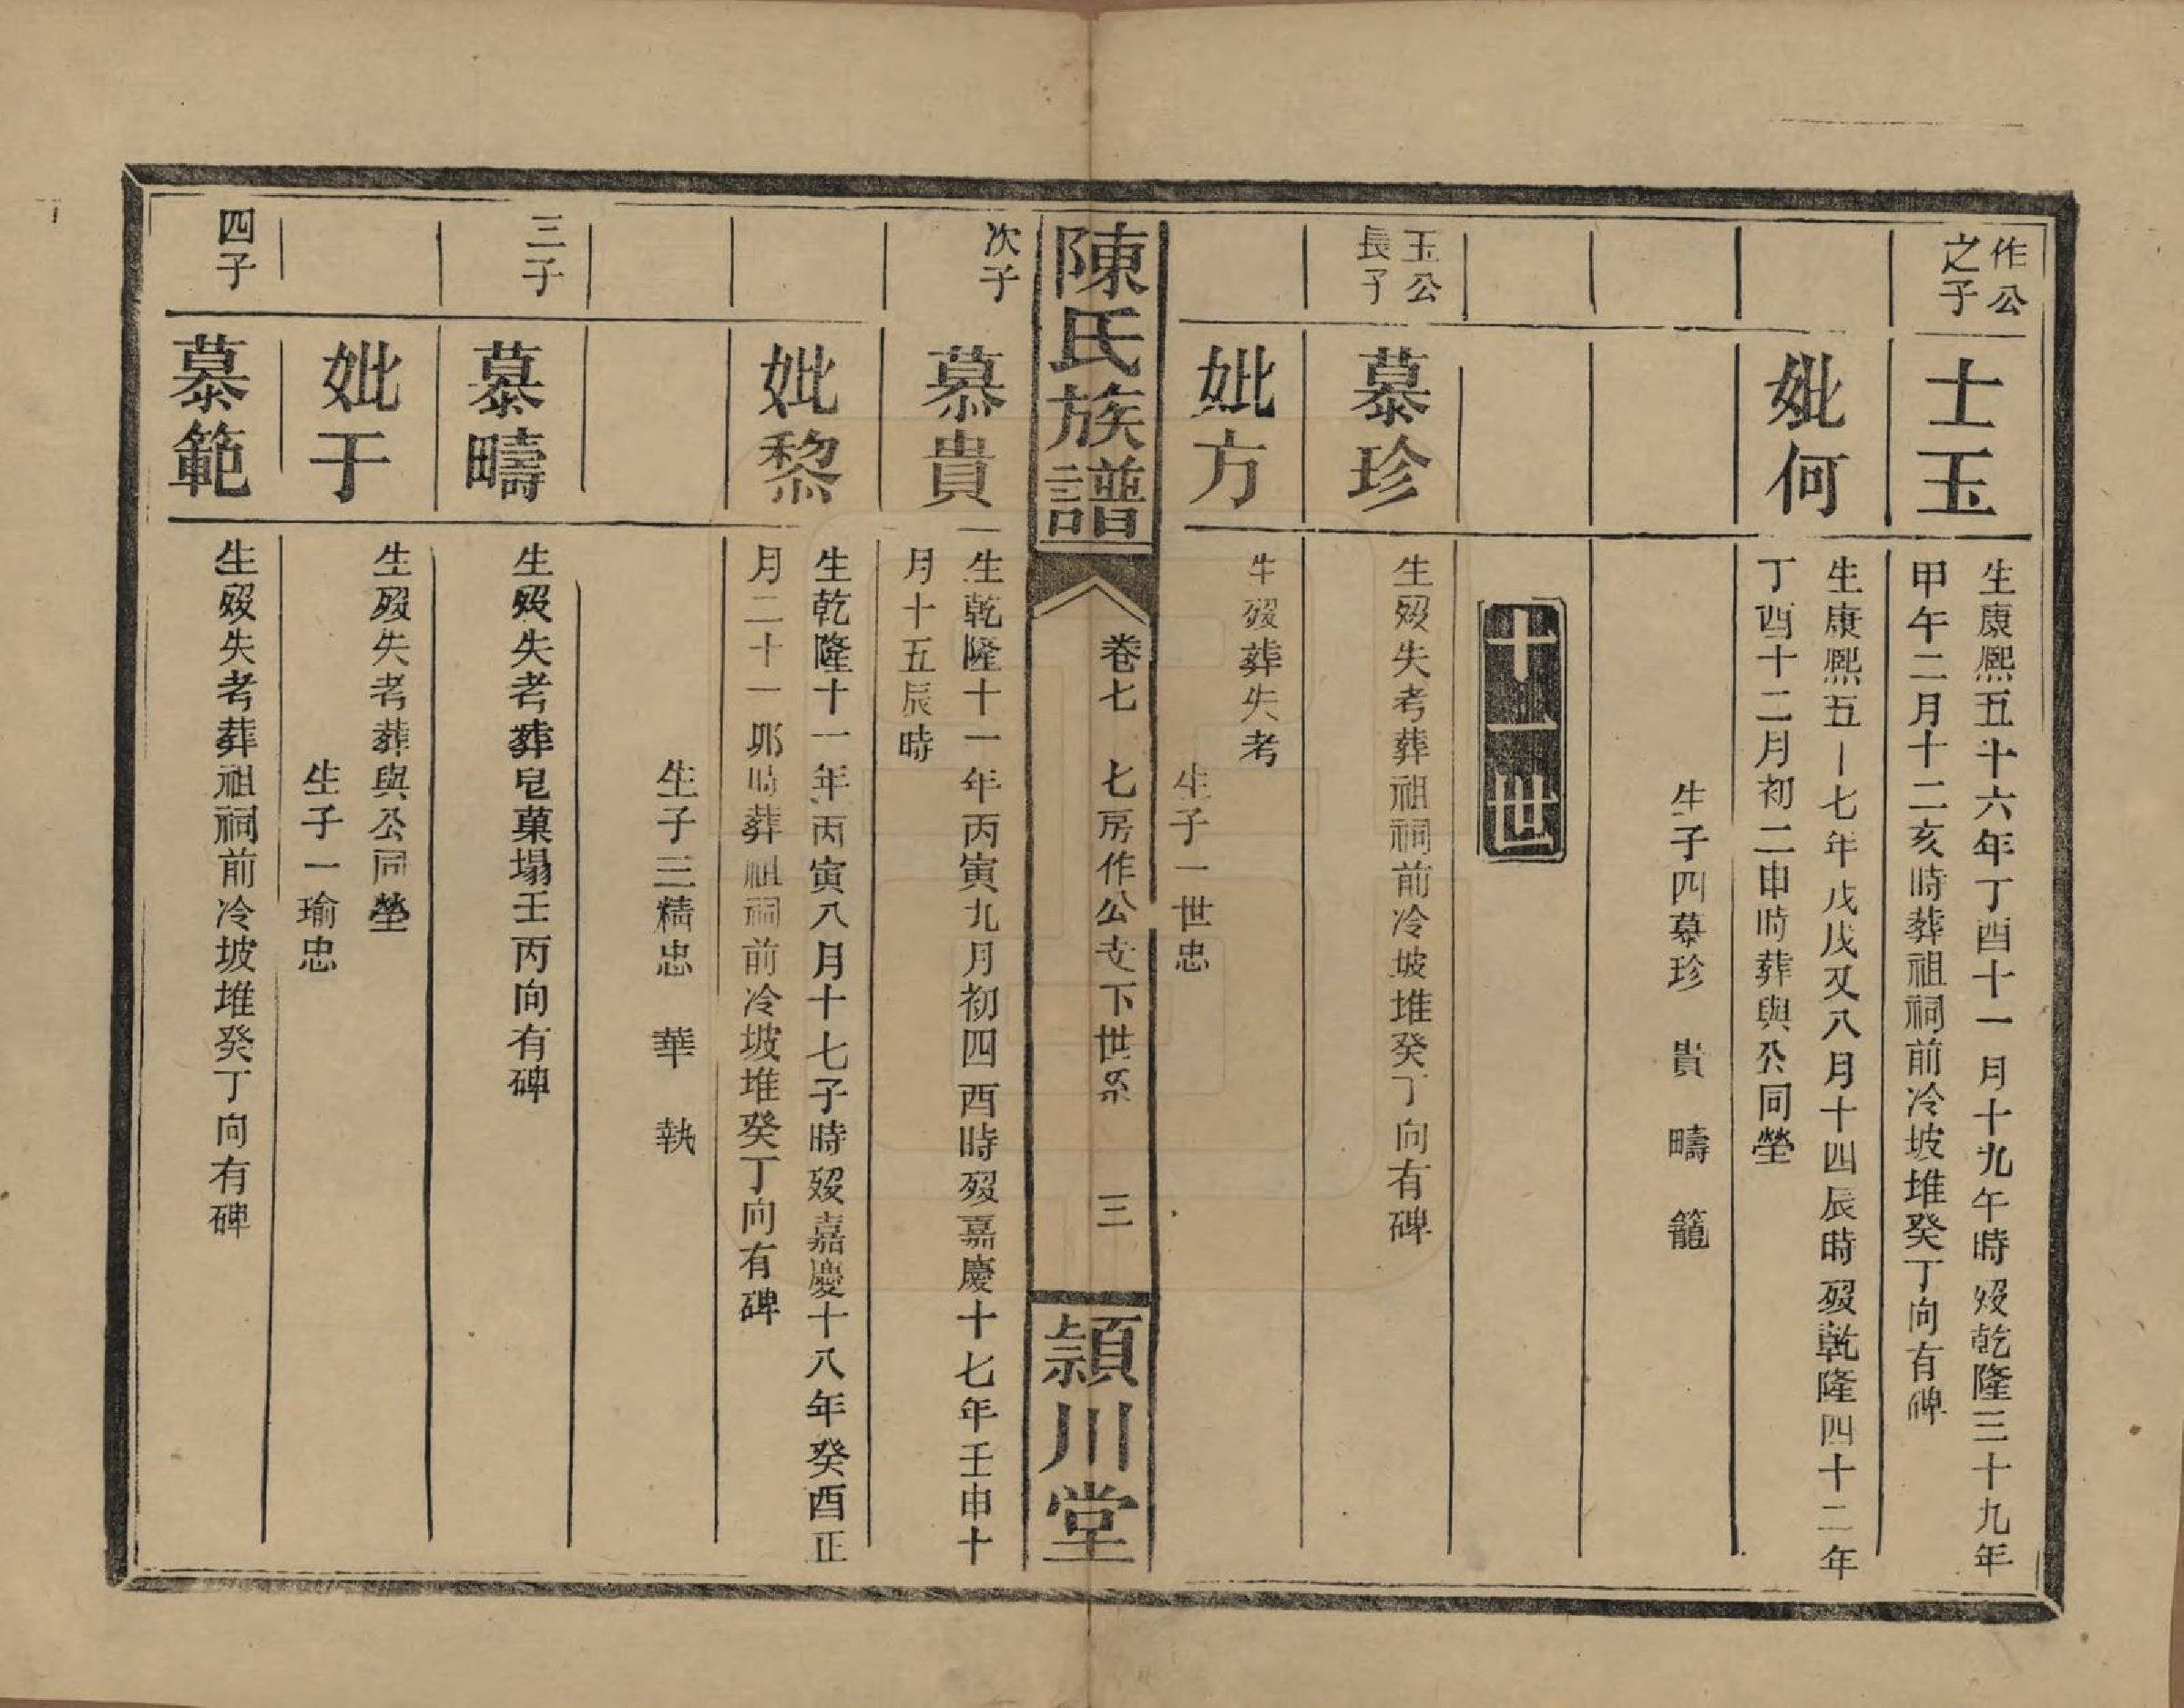 作公
之子
士玉
生康熙五十六年丁酉十一月十九午時歿乾隆三十九年
甲午二月十二亥時葬祖祠前冷坡堆癸丁向有碑
妣何
生康熙五十七年戊戌又八月十四辰時歿乾隆四十二年
丁酉十二月初二申時葬與公同塋
生子四慕珍 貴 疇 籠
十一世
玉公
長子
慕珍
生歿失考葬祖祠前冷坡堆癸丁向有碑
妣方
生歿葬失考
生子一世忠
陳氏族譜
卷七 七房作公支下世系 三
潁川堂
次子
慕貴
生乾隆十一年丙寅九月初四酉時歿嘉慶十七年壬申十
月十五辰時
妣黎
生乾隆十一年丙寅八月十七子時歿嘉慶十八年癸酉正
月二十一卯時葬祖祠前冷坡堆癸丁向有碑
生子三精忠 華 執
三子
慕疇
生歿失考葬皂菓塌壬丙向有碑
妣于
生歿失考葬與公同塋
生子一瑜忠
四子
慕範
生歿失考葬祖祠前冷坡堆癸丁向有碑